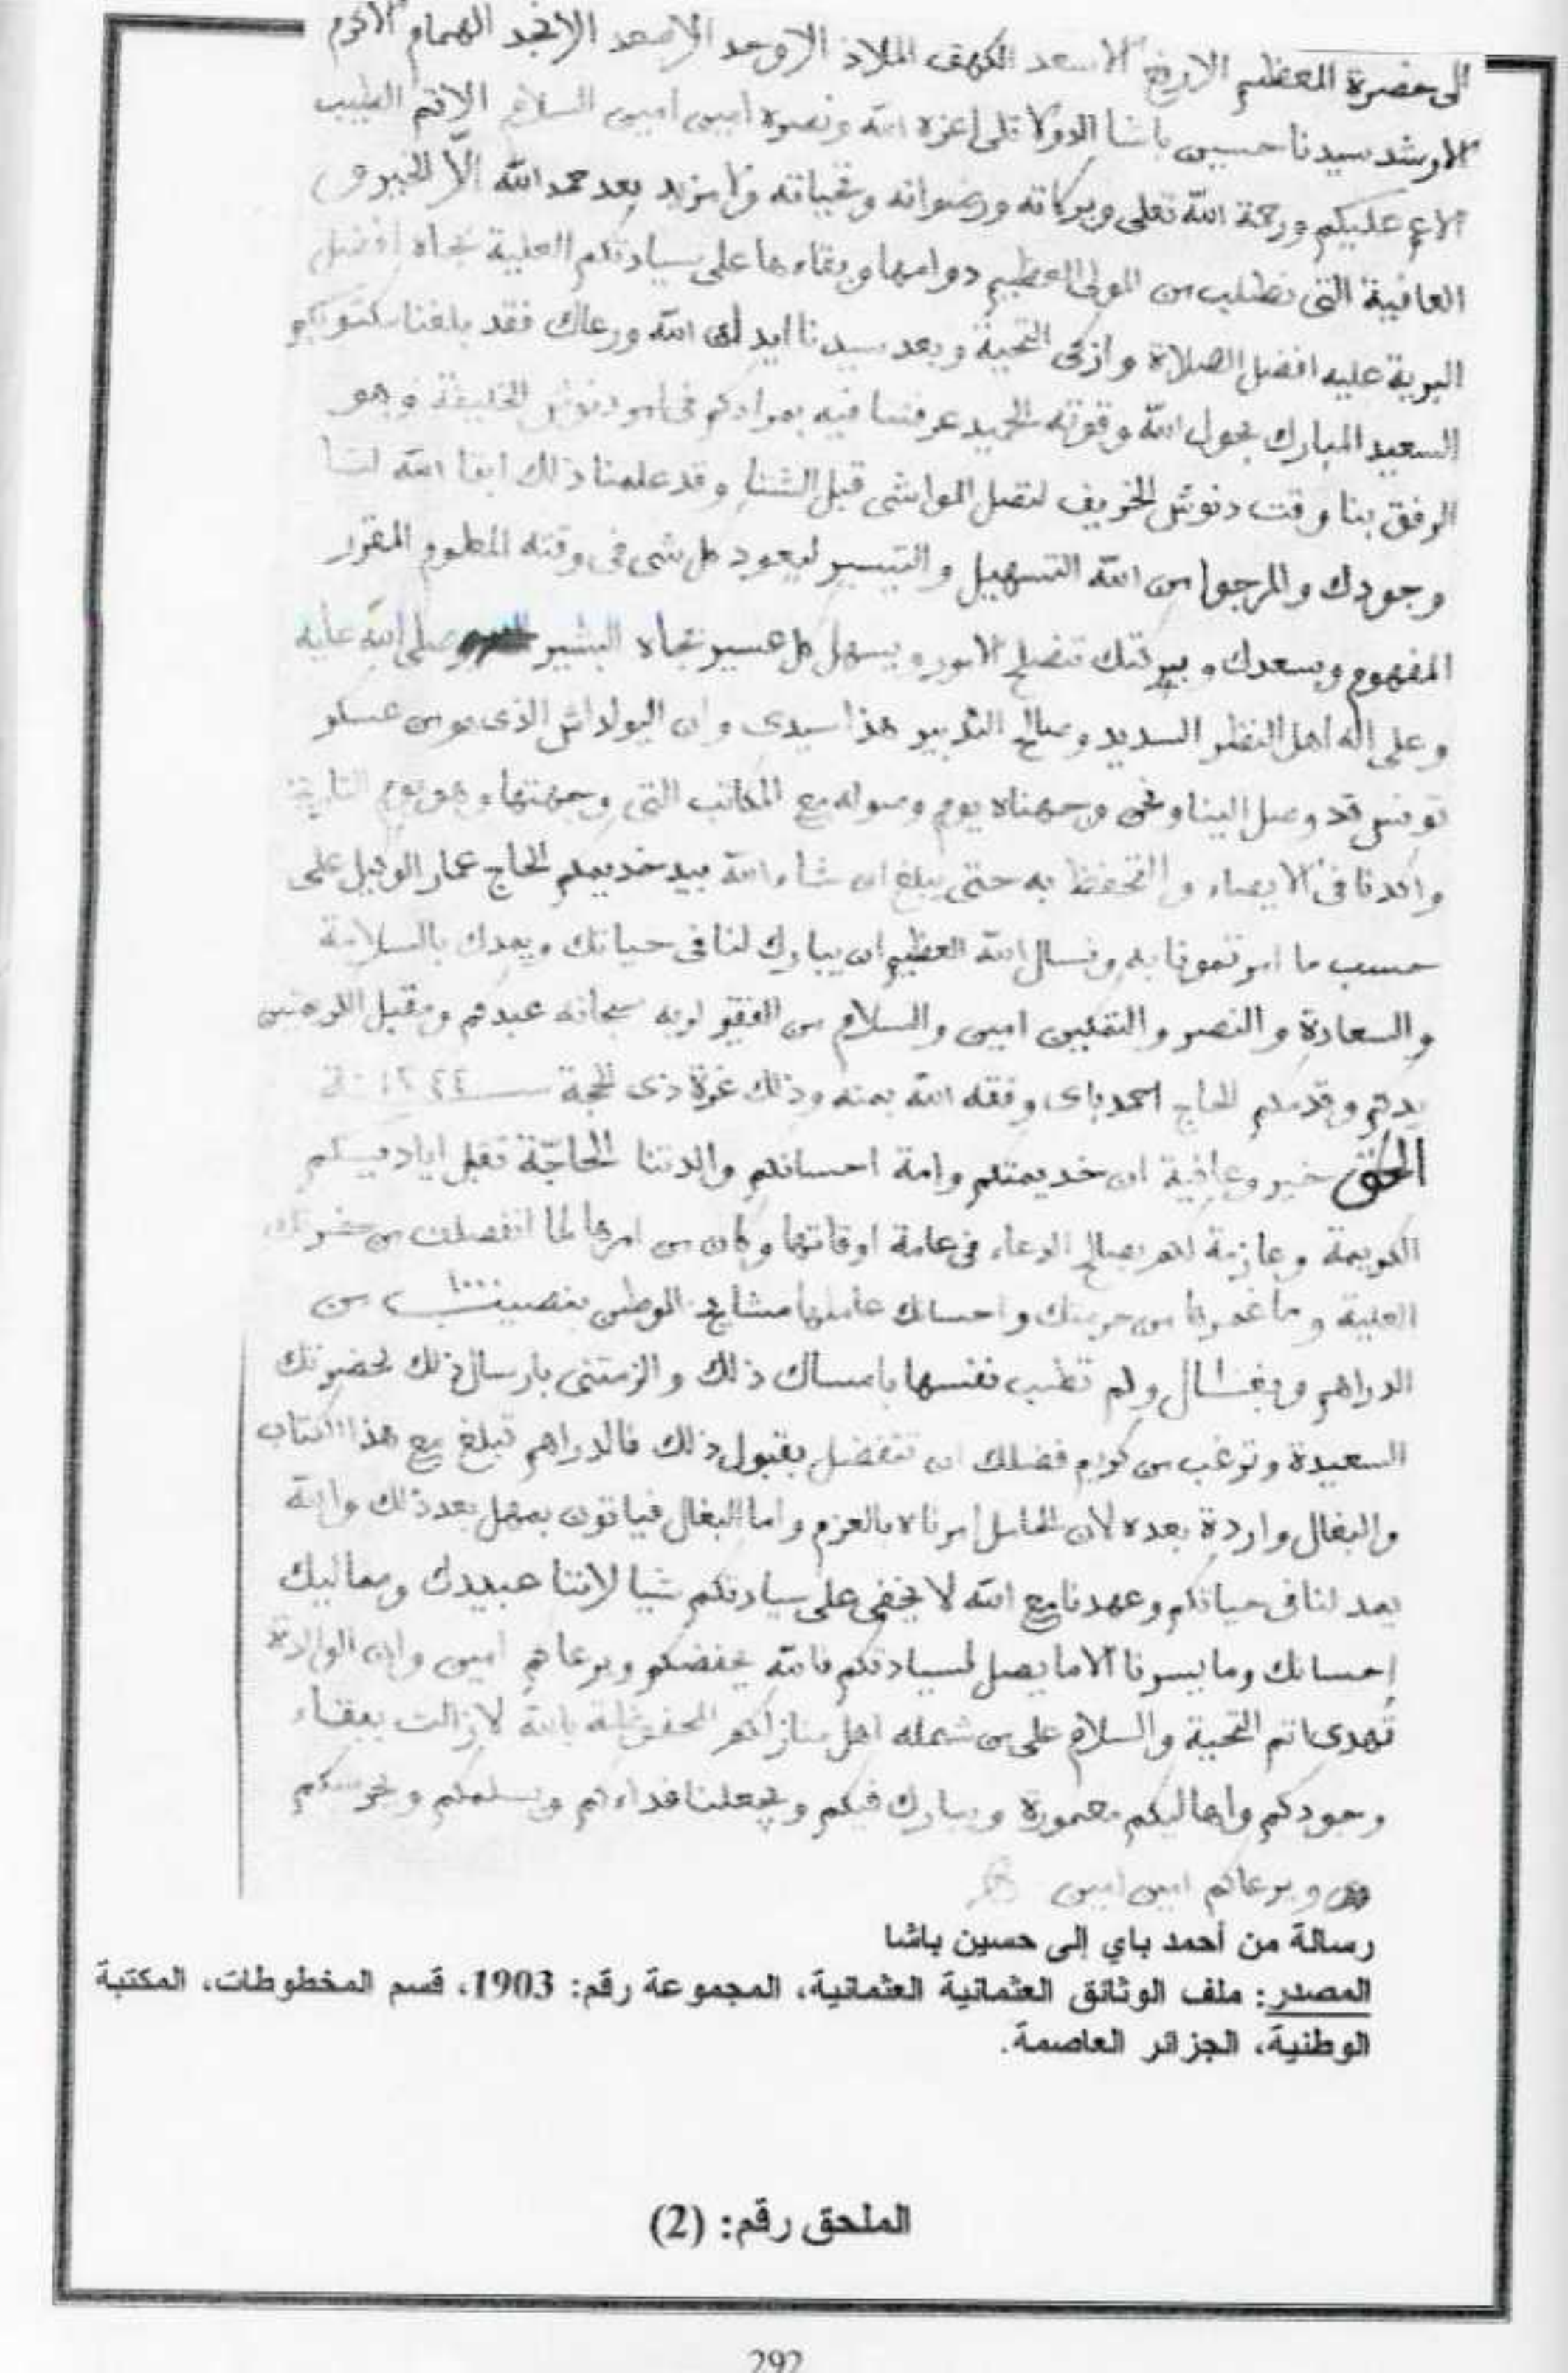 الى حضرة المعظم الارفع الاسعد الكهف الملاذ الاوحد الاصعد الانجد الهمام الاكرم
الارشد سيدنا حسين باشا الدولاتلى اعزه الله ونصره امين امين السلام الاتم الطيب
الاعم عليكم ورحمة الله تعلى وبركاته ورضوانه وتحياته ولا مزيد بعد حمد الله الّا الخير و
العافية التى نطلب من المولى العظيم دوامها وبقاءها على سيادتكم العلية بجاه افضل
البرية عليه افضل الصلاة وازكى التحية وبعد سيدنا ايدك الله ورعاك فقد بلغنا مكتوبكم
السعيد المبارك بحول الله وقوته الحميد عرفتنا فيه بمرادكم فى امر دنوش الخليفة وهو
الرفق بنا وقت دنوش الخريف لتصل المواشى قبل الشتا وقد علمنا ذلك ابقا الله لنا
وجودك والمرجوا من الله التسهيل والتيسير ليعود كل شى فى وقته المعلوم المقرر
المفهوم وبسعدك وبركتك تنصلح الامور ويسهل كل عسير بجاه البشير صلى الله عليه
وعلى اله اهل النظر السديد وصالح التدبير هذا سيدى وان اليولداش الذى هو من عسكر
تونس قد وصل الينا ونحن وجهناه يوم وصوله مع المكاتب التى وجهتها وهو يوم التاريخ
واكدنا فى الايصاء والتحفظ به حتى يبلغ ان شاء الله بيد خديمكم الحاج عمار الوكيل على
حسب ما امرتمونا به ونسال الله العظيم ان يبارك لنا فى حياتك ويمدك بالسلامة
والسعادة والنصر والتمكين امين والسلام من الفقير لربه سبحانه عبدكم ومقبل
يدكم وقدمكم الحاج احمد باى وفقه الله بمنه وذلك غرة ذى الحجة سنة ١٢٤٤
خير وعافية ان خديمتكم وامة احسانكم والدتنا الحاجّة تقبل اياديكم
الكريمة وعازمة لكم بصالح الدعاء فى عامة اوقاتها وكان من امرها لما انفصلت من حضرتك
العلية وما غمرها من حرمتك واحسانك عاملها مشايخ الوطن ١٠٠٠ من
الدراهم وبغال ولم تطب نفسها بامساك ذلك والزمتنى بارسال ذلك لحضرتك
السعيدة وترغب من كريم فضلك ان تتفضل بقبول ذلك فالدراهم تبلغ مع هذا الكتاب
والبغال واردة بعده لان الحامل امرناه بالعزم واما البغال فياتون بمهل بعد ذلك والله
يمد لنا فى حياتكم وعهدنا مع الله لا يخفى على سيادتكم شيا لاننا عبيدك ومماليك
احسانك وما يسرنا الا ما يصل لسيادتكم فالله يحفضكم ويرعاكم امين وان الوالدة
تهدى اتم التحية والسلام على من شمله اهل منازلكم المحفوظة بالله لا زالت ببقاء
وجودكم واهاليكم معمورة ويبارك فيكم ويجعلنا فداءكم ويسلمكم ويحرسكم
ويرعاكم امين امين
رسالة من أحمد باي إلى حسين باشا
المصدر: ملف الوثائق العثمانية العثمانية، المجموعة رقم: 1903، قسم المخطوطات، المكتبة
الوطنية، الجزائر العاصمة.
الملحق رقم: (2)
292